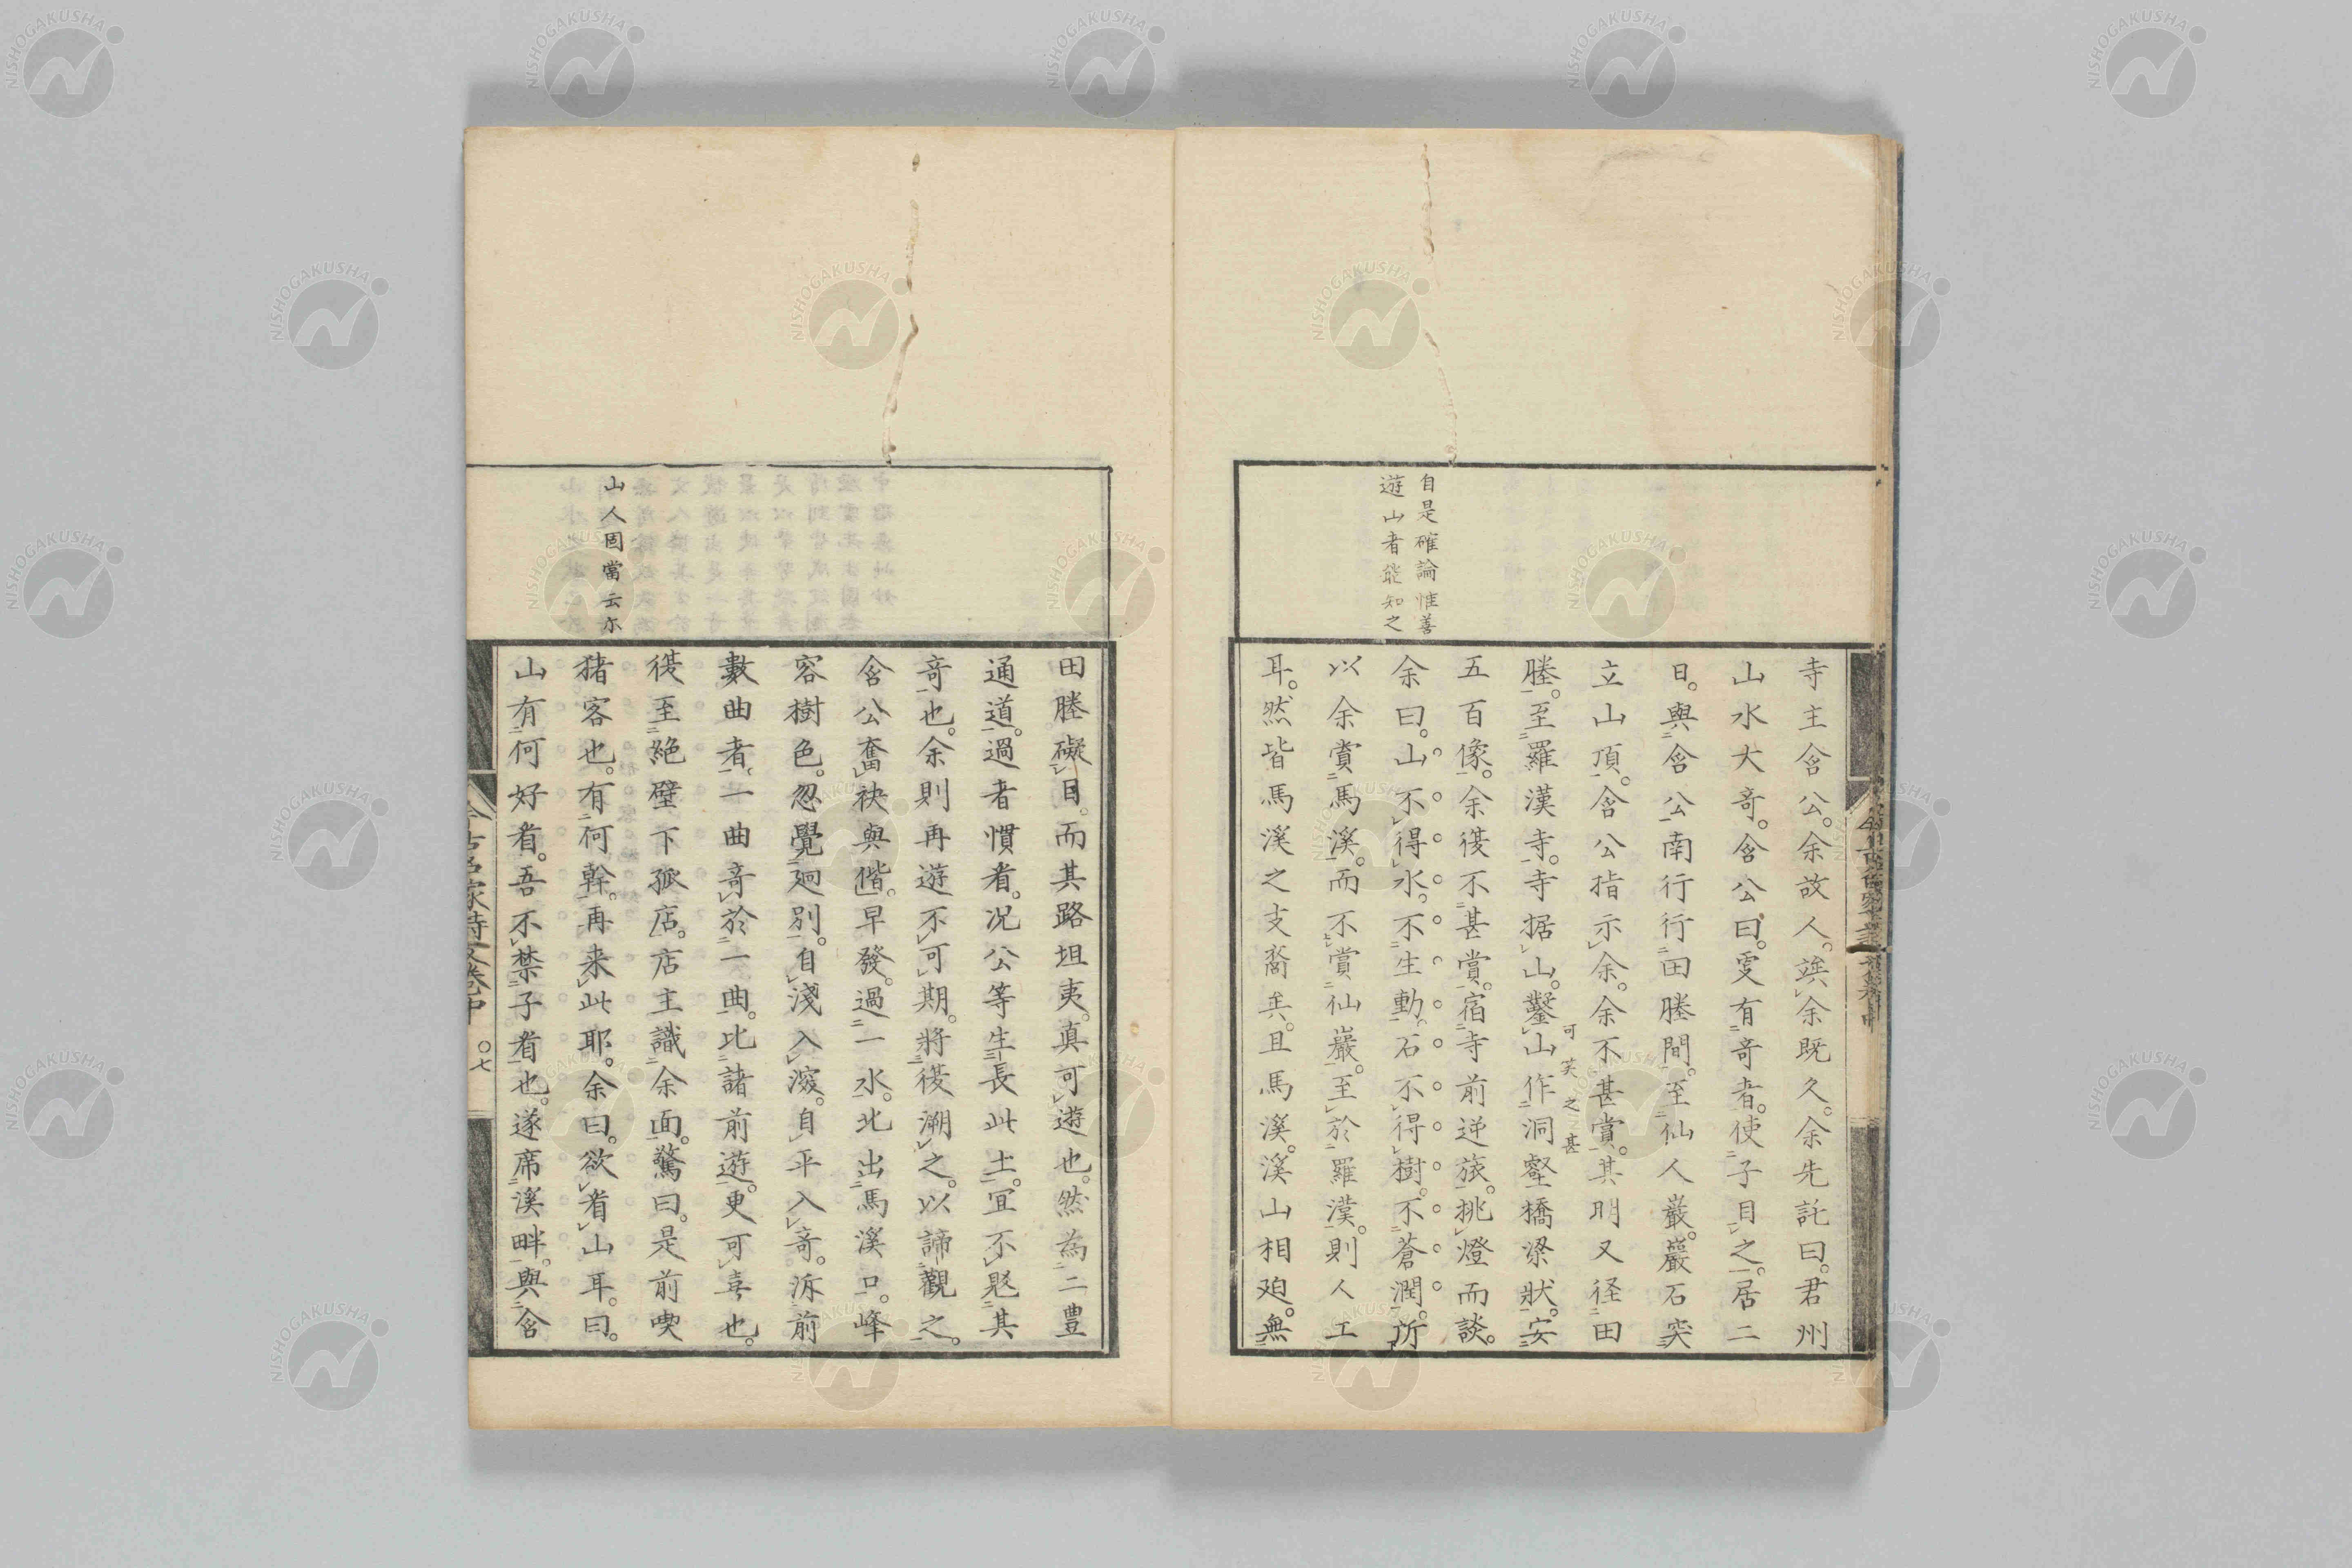 自是確論惟善
遊山者能知之
寺主含公。余故人。竢余既久。余先託曰。君州
山水大奇。含公曰。更有奇者。使子目之。居二
日。與含公南行行田塍間。至仙人巖。巖石突
立山頂。含公指示余。余不甚賞。其明又径田
塍。至羅漢寺。寺据山。鑿山作洞壑橋梁狀。安
可笑之甚
五百像。余復不甚賞。宿寺前逆旅。挑燈而談。
余曰。山不得水。不生動。石不得樹。不蒼潤。所
以余賞馬溪。而不賞仙巖。至於羅漢。則人工
耳。然皆馬溪之支裔矣。且馬溪。溪山相廻。無
山人固當云尓
田塍礙目。而其路坦夷。真可遊也。然為二豊
通道。過者慣看。况公等生長此土。宜不覐其
奇也。余則再遊不可期。將復溯之。以諦觀之。
含公奮袂與偕。早發。過一水。北出馬溪口。峰
容樹色。忽覺廻別。自淺入深。自平入奇。泝前
數曲者。一曲奇於一曲。比諸前遊。更可喜也。
復至絶壁下孤店。店主識余面。驚曰。是前喫
猪客也。有何幹。再来此耶。余曰。欲看山耳。曰。
山有何好看。吾不禁子看也。遂席溪畔。與含
今古名家詩文卷中
〇七
NISHOGAKUSHA